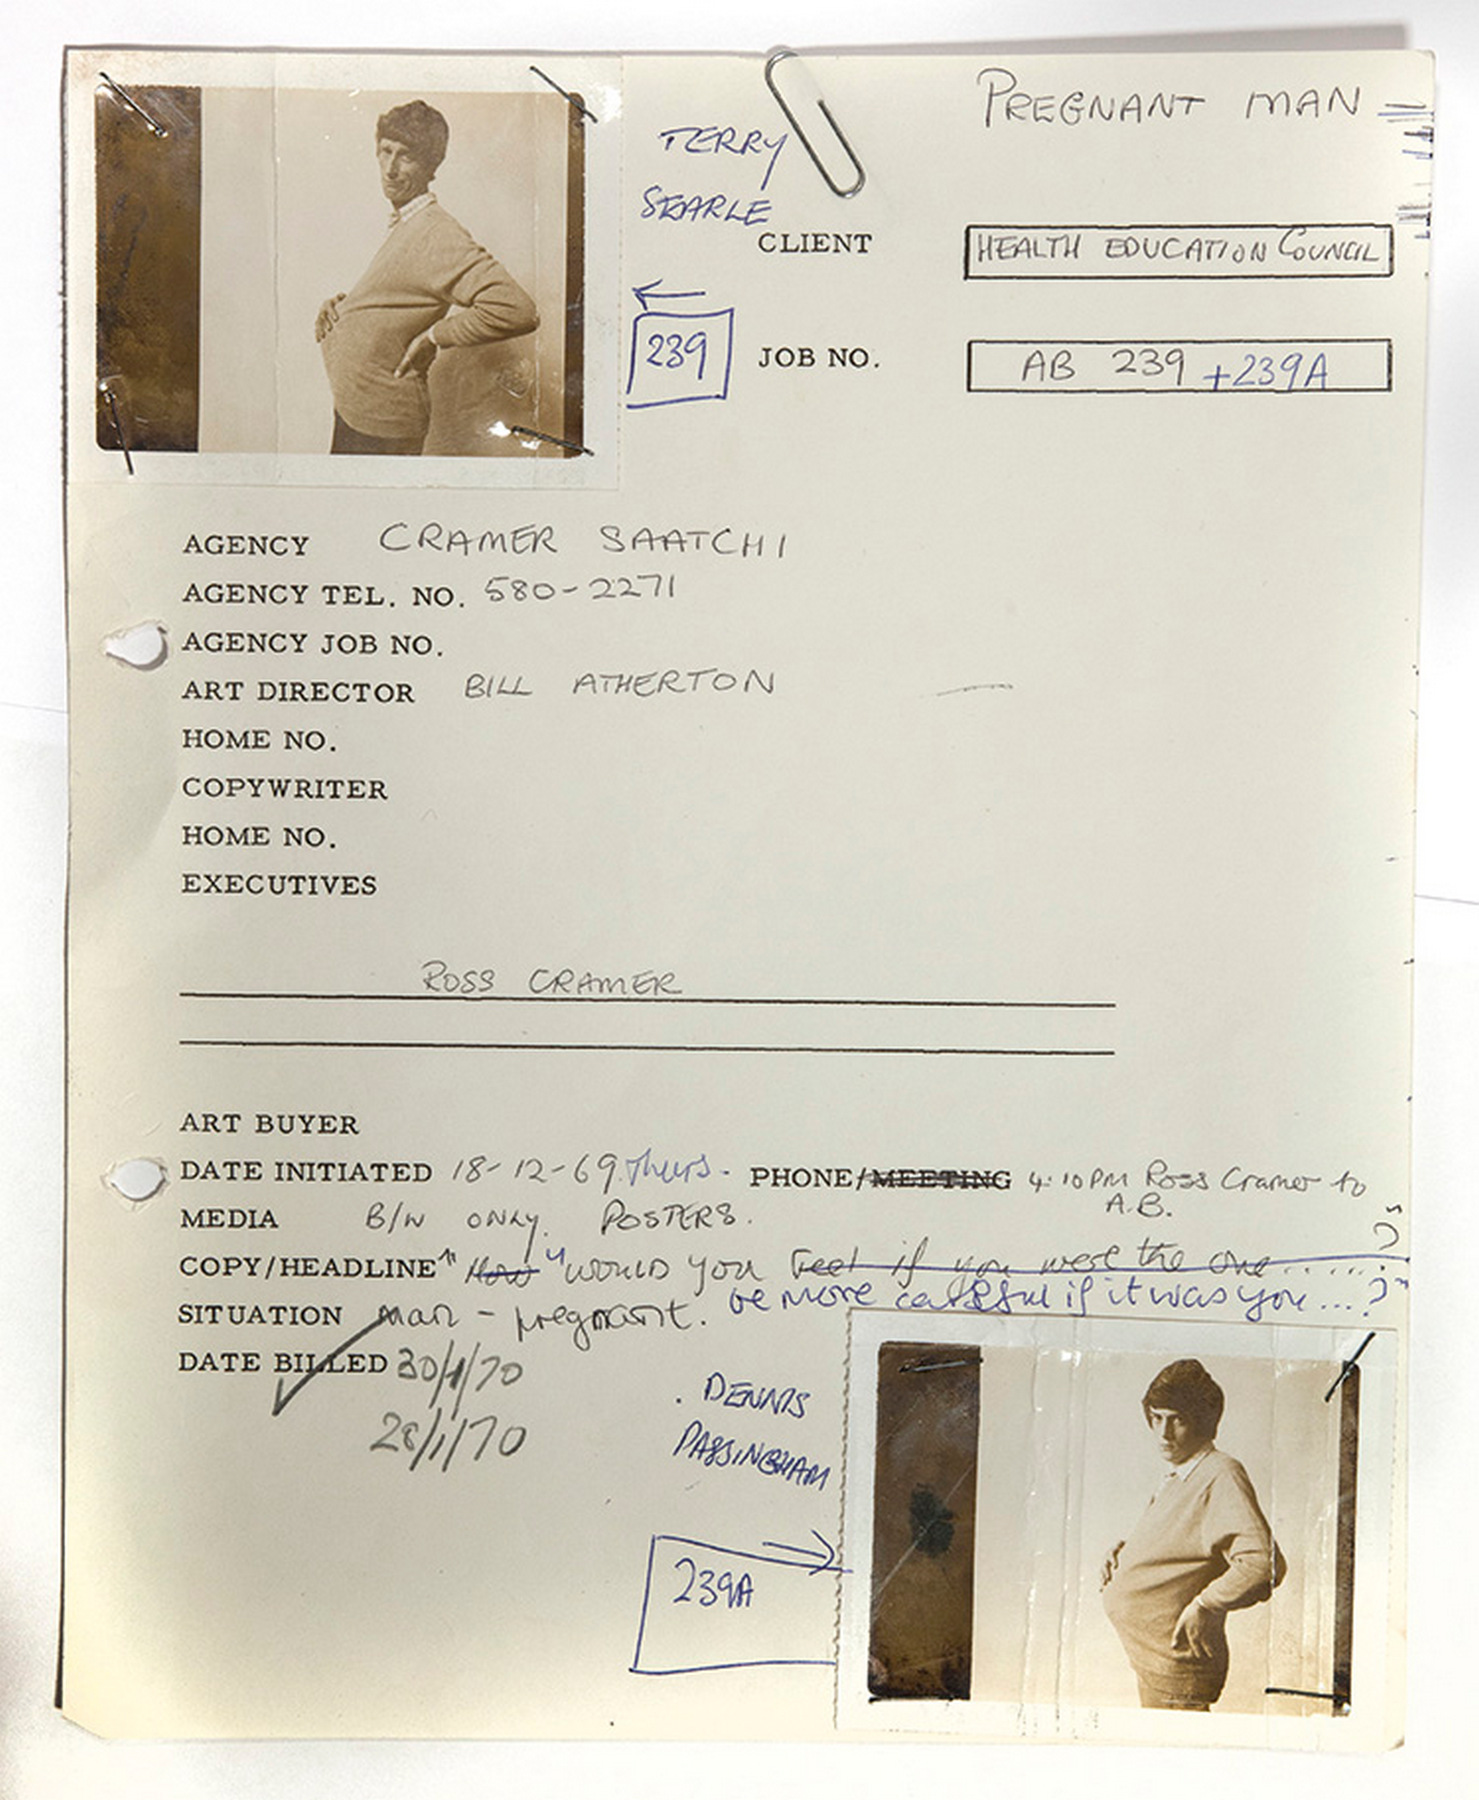 PREGNANT MAN
TERRY
SEARLE
CLIENT HEALTH EDUCATION COUNCIL
239 JOB NO. AB 239 +239A
AGENCY CRAMER SAATCHI
AGENCY TEL. NO. 580-2271
AGENCY JOB NO.
ART DIRECTOR BILL ATHERTON
HOME NO.
COPYWRITER
HOME NO.
EXECUTIVES
ROSS CRAMER
ART BUYER
DATE INITIATED 18-12-69 Thurs. PHONE/MEETING 4.10PM Ross Cramer to
A.B.
MEDIA B/W ONLY. POSTERS.
COPY/HEADLINE "How "WOULD you feel if you were the one......?"
be more careful if it was you...?"
SITUATION man - pregnant.
DATE BILLED 30/1/70
28/1/70
DENNIS
PASSINGHAM
239A